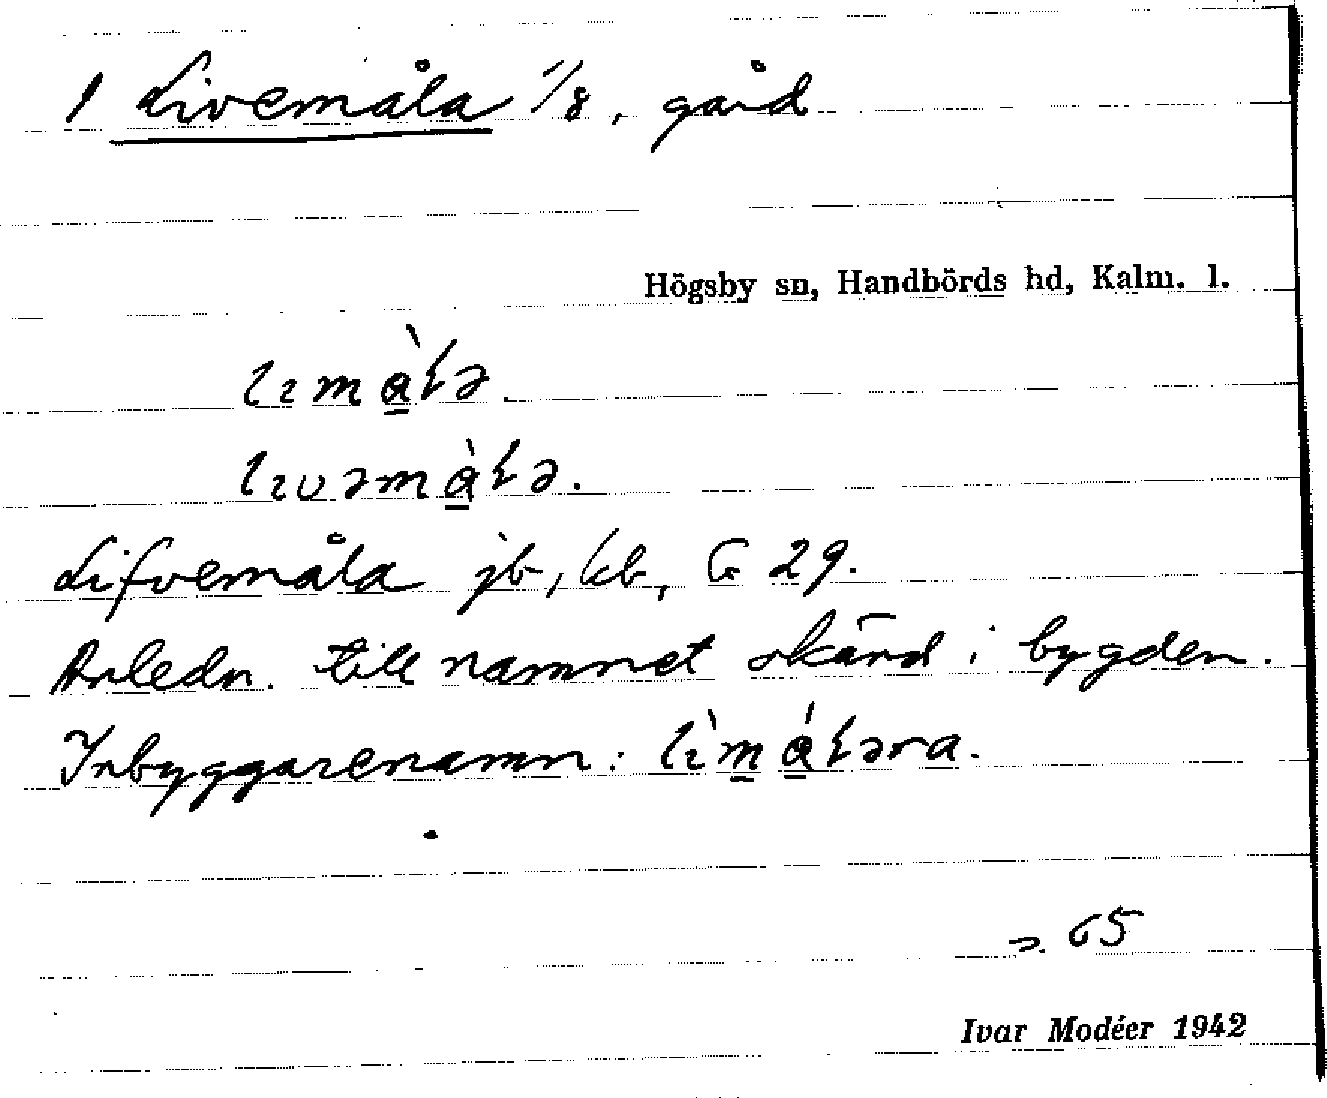 1 Livemåla 1/8, gård
Högsby sn, Handbörds hd, Kalm. l.
lımà̱ɫə
lıvəmà̱ɫə.
Lifvemåla jb, kb, G 29.
Anledn. till namnet okänd i bygden.
Inbyggarenamn: lı̀m̱á̱ɫəra.
65
Ivar Modéer 1942